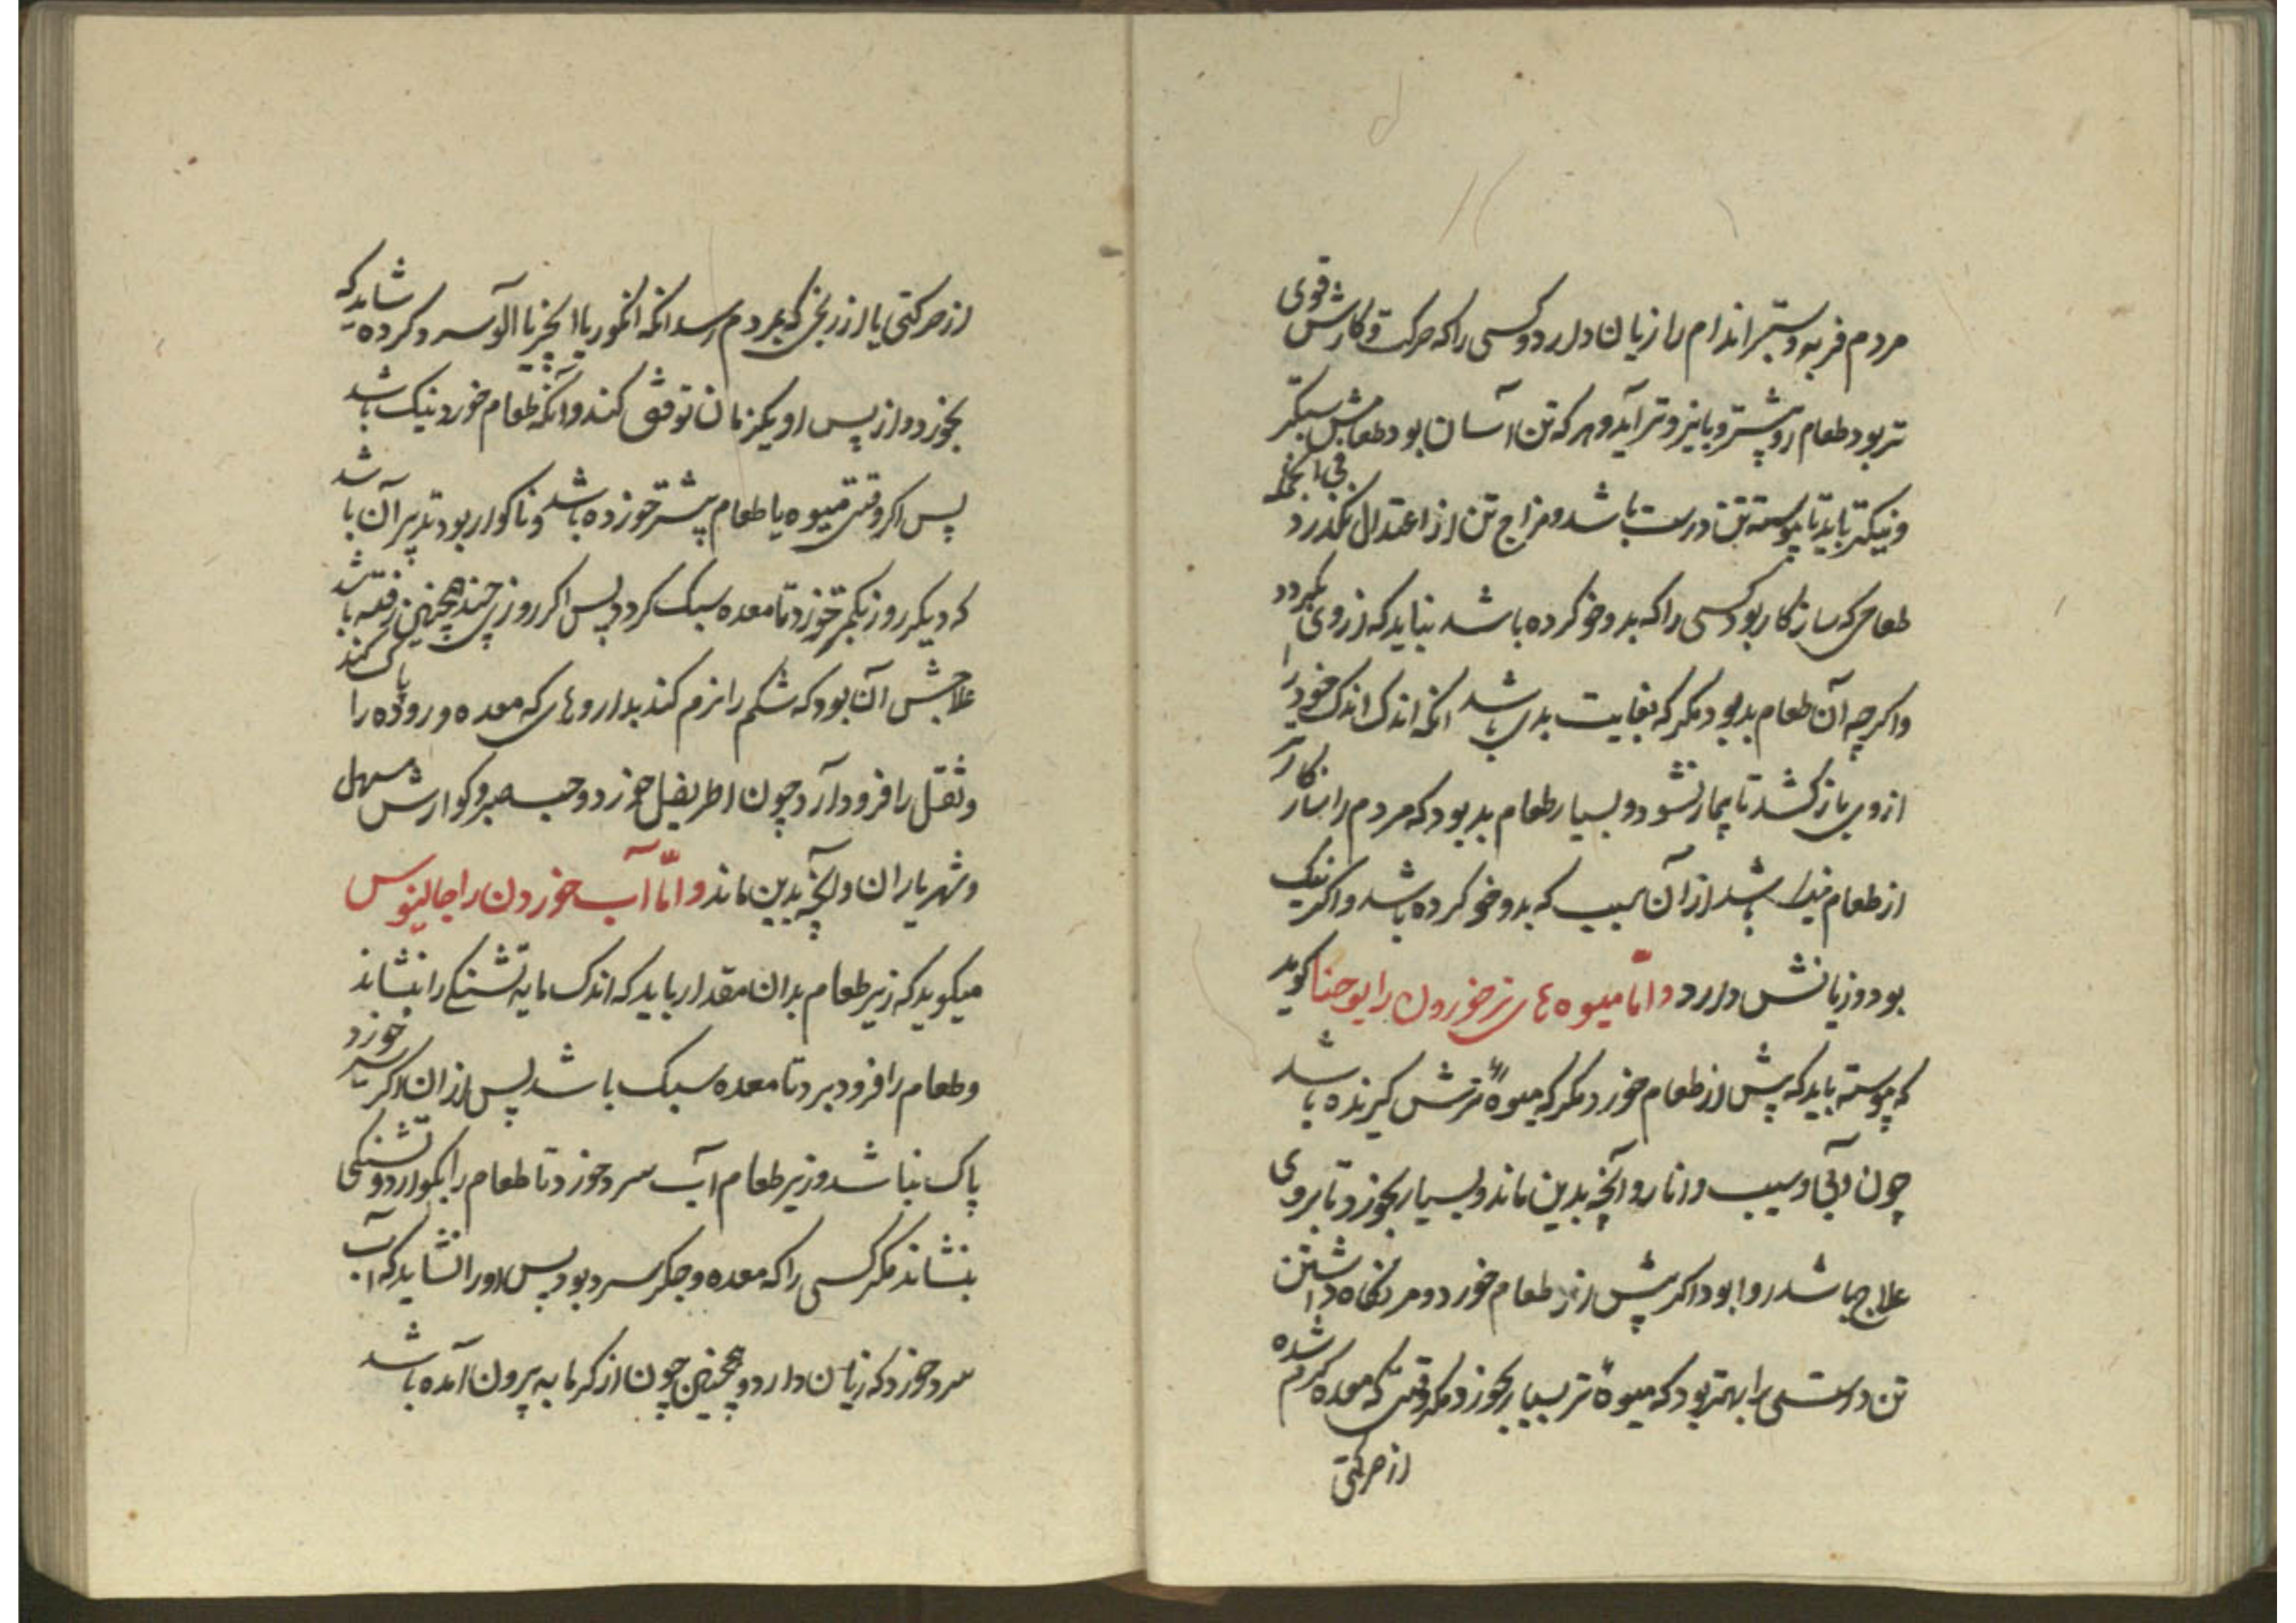 مردم فربه و ستبر اندام را زیان دارد و کسی را که حرکت و کارش قوی
تر بود طعام او بیشتر و بانیروتر آید و هر که تن آسان بود طعامش سبکتر
و نیکتر باید تا پیوسته تن درست باشد و مزاج تن از اعتدال نگذرد فی الجمله
طعامی که سازکار بود کسی را که بدو خو کرده باشد نباید که از وی بگردد
و اکرچه آن طعام بد بود مکر که بغایت بدی باشد آنکه اندک اندک خود را
از وی باز کشد تا بیمار نشود و بسیار طعام بد بود که مردم را سازکارتر
از طعام نیک باشد از آن سبب که بدو خو کرده باشد و اکر نیک
بود و زیانش دارد و امّا میوه های تر خوردن را یوحنا کوید
که پیوسته باید که پیش از طعام خورد مکر که میوهٔ ترش کیرنده باشد
چون آبی و سیب و انار و آنچه بدین ماند و بسیار بخورد تا بروی
علاج باشد روا بود اکر پیش از طعام خورد و مر نکاه داشتن
تن درستی را بهتر بود که میوهٔ تر بسیار بخورد مکر وقتی که معده کرم شده
از حرکتی
از حرکتی یا از رنجی که بمردم رسد آنکه انکور یا انجیر یا آلو سرد کرده شاید که
بخورد و از پس او یکزمان توقف کند و آنکه طعام خورد نیک باشد
پس اکر وقتی میوه یا طعام پیشتر خورده باشد و ناکوار بود تدبیر آن باشد
که دیکر روز کمتر خورد تا معده سبک کردد پس اکر روزی چند همچنین رفته باشد
علاجش آن بود که شکم را نرم کند بداروهای که معده و روده را پاک کند
و ثقل را فرود آرد چون اطریفل خورد و حب صبر و کوارش مسهل
و شهریاران و آنچه بدین ماند و امّا آب خوردن را جالینوس
میکوید که زیر طعام بدان مقدار باید که اندک مایه تشنکی را بنشاند
و طعام را فرود برد تا معده سبک باشد پس از آن اکر سیر خورد
پاک نباشد و زیر طعام آب سرد خورد تا طعام را بکوارد و تشنکی
بنشاند مکر کسی را که معده و جکر سرد بود پس او را نشاید که آب
سرد خورد که زیان دارد و همچنین چون از کرمابه بیرون آمده باشد